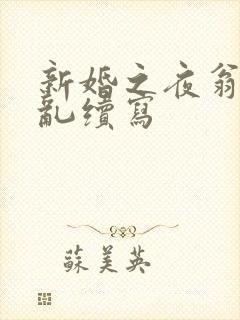 新婚之夜翁
亂續寫
蘇美英